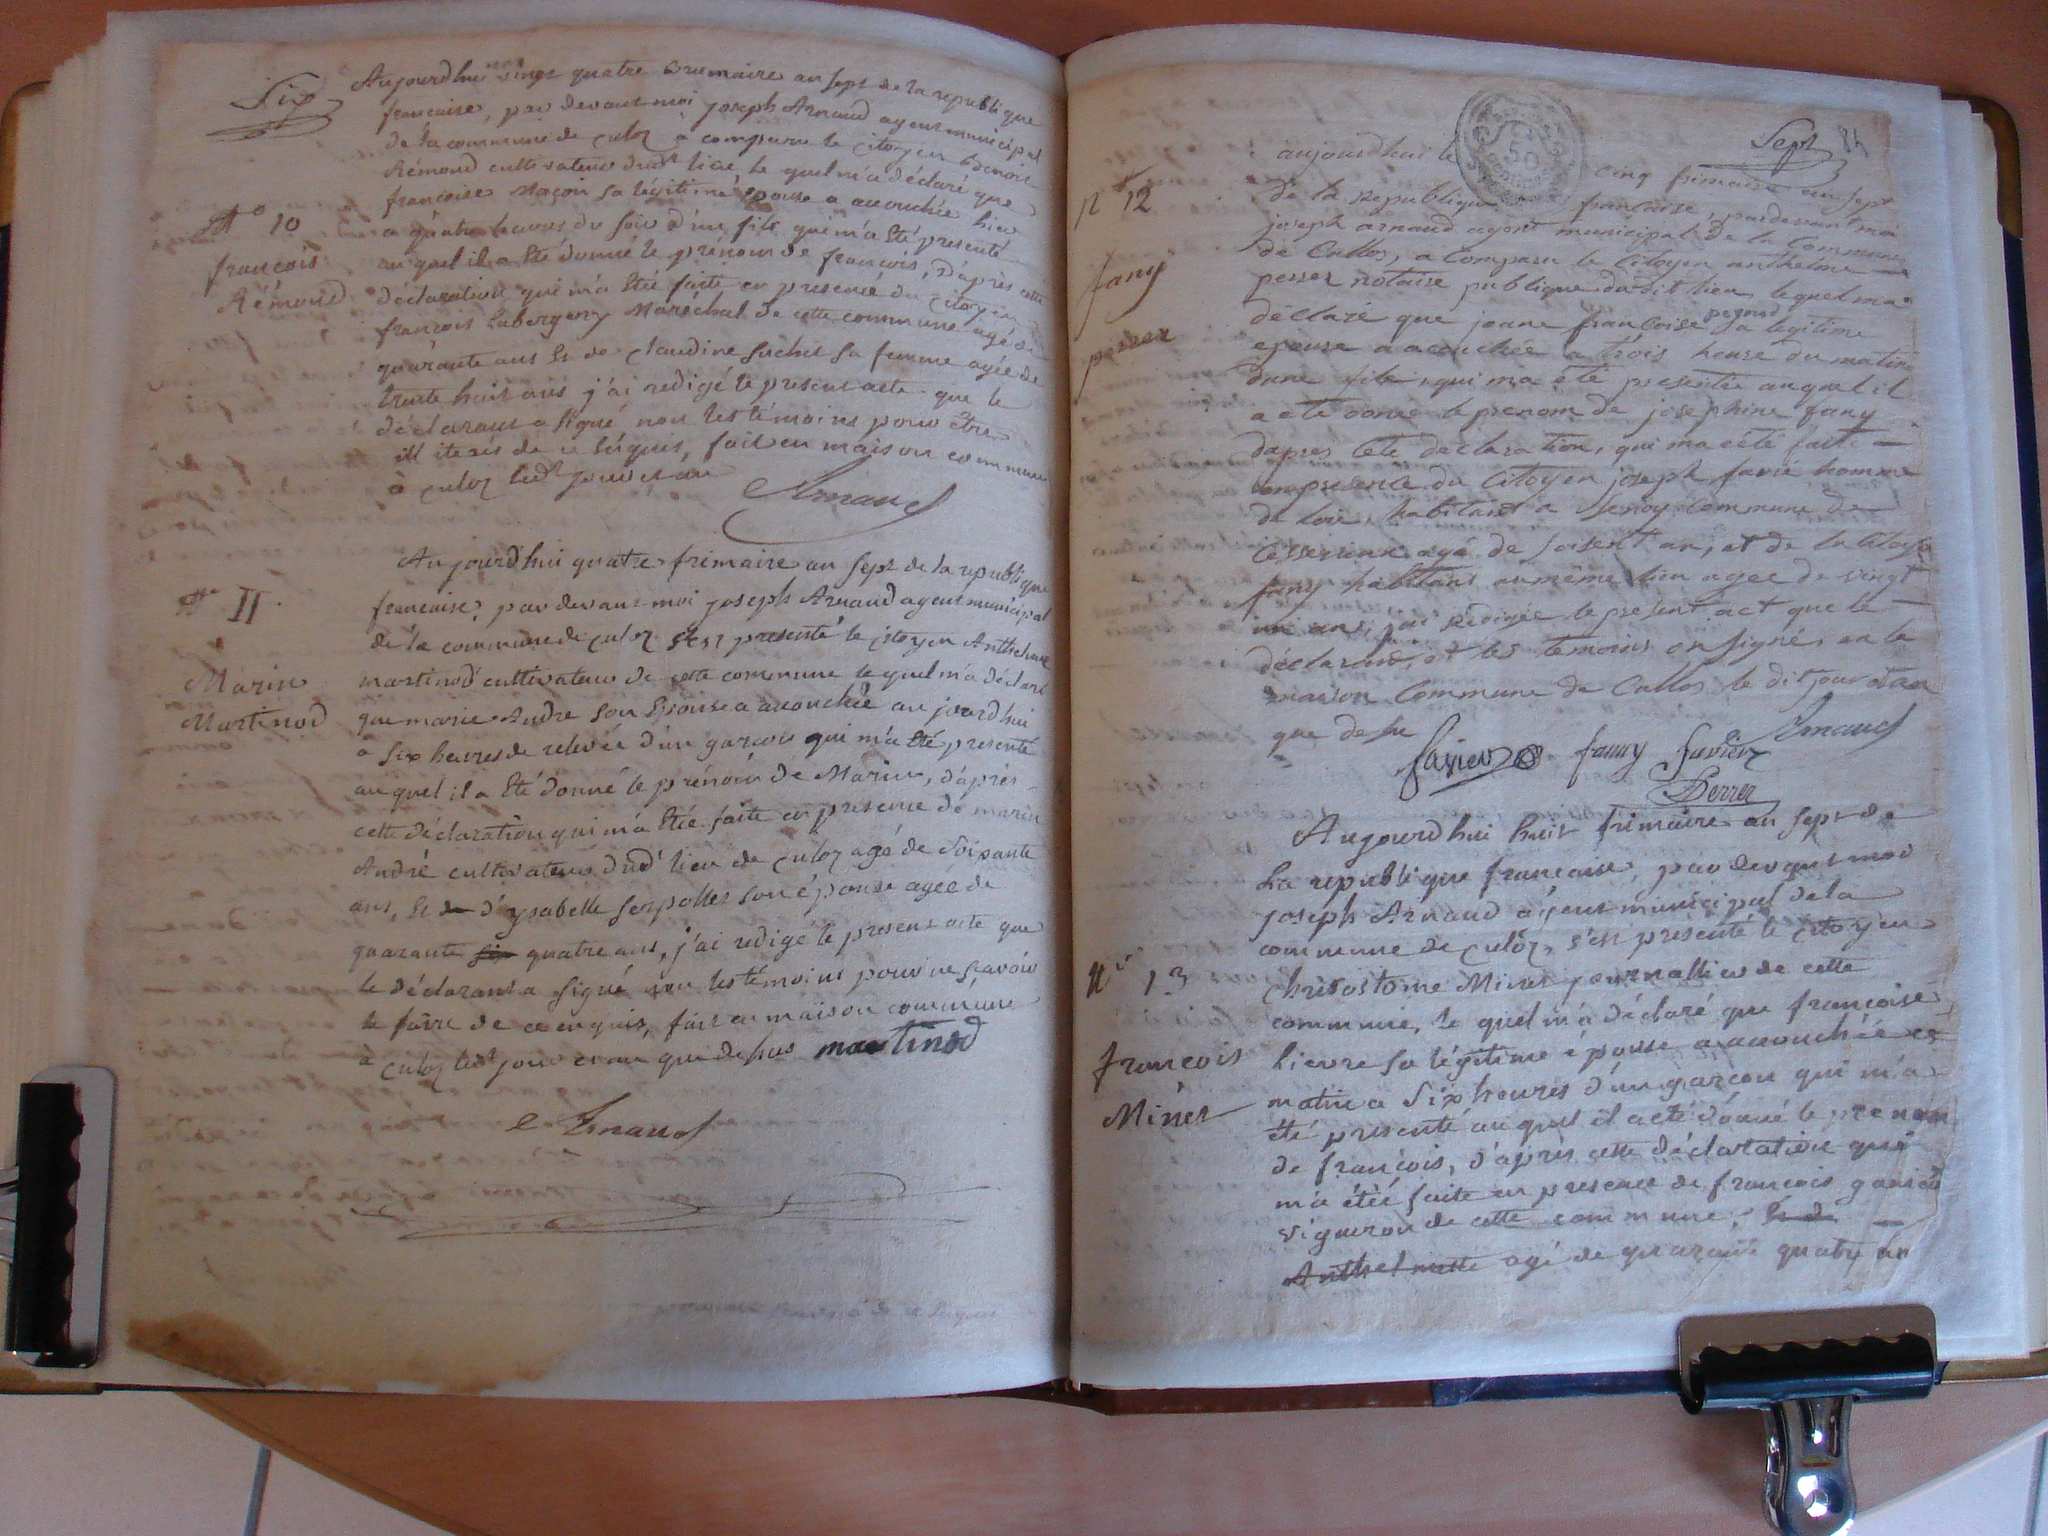 Six
Aujourdhui vingt quatre brumaire an sept de la republique
francaise, par devant moi joseph Arnaud agent municipal
de la commune de culoz à comparu le citoyen Benoit
Rémond cultivateur dudt lieu le quel m'a déclaré que
françoise Maçon sa légitime épouse a accouchée hier
N° 10
a quatre heures du soir d'un fils qui m'a été presenté
françois
au quel il a été donné le prénom de francois, d'après cette
Rémond
déclaration qui m'a étée faite en presence du citoyen
francois Labergery Maréchal de cette commune agé de
quarante ans et de claudine suchet sa femme agée de
trente huit ans j'ai redigé le present acte que le
déclarant a signé non les témoins pour être
illiterés de ce enquis, fait en maison commune
à culoz ledt jour et an
Arnaud
Aujourd'hui quatre frimaire an sept de la republique
N° 11
francaise, par devant moi joseph Arnaud agent municipal
de la commune de culoz s'est presenté le citoyen Anthelme
Marin
martinod cultivateur de cette commune le quel m'a déclaré
Martinod
que marie Andre son épouse a accouchée aujourdhui
a six heures de relevée d'un garcon qui m'a été presenté
au quel il a été donné le prénom de Marin, d'après
cette déclaration qui m'a étée faite en presence de marin
André cultivateur dudt lieu de culoz agé de soixante
ans, et de d'ysabelle serpollet son épouse agée de
quarante six quatre ans, j'ai redigé le present acte que
le déclarant a signé non les témoins pour ne scavoir
le faire de ce enquis, fait en maison commune
à culoz ledt jour et an que dehus martinod
Arnaud
Sept
84
aujourdhui le cinq frimaire an sept
n° 12
de la republique francaise, pardevant moi
joseph arnaud agent municipal de la Commune
de Cullos, a comparu le Citoyen anthelme
fany
perrer notaire publique dudit lieu lequel ma
perrer
déclaré que jeane françoise sa legitime
epouse a acouchée a trois heure du matin
dune file, qui ma été presentée auquel il
a été donné le prenom de josephine fany
dapres cete declaration, qui ma été fait
en presence du Citoyen joseph favié homme
de loix, habitant a Commune de
agé de soisent an, et de la Citoye
fany habitant au même lieu agée de vingt
un ans, jai redigée le present act que le
déclarand, et les temoins on signé, en la
maison Commune de Cullos le dit jour et an
que dehu
favier fanny favier Arnaud
Perrer
Aujourdhui huit frimaire an sept de
la republique francaise, par devant moi
joseph Arnaud agent municipal de la
commune de culoz, s'est présenté le citoyen
N° 13
chrisostome Minet journallier de cette
commune, le quel m'a déclaré que françoise
françois
Lievre sa légitime épouse a accouchée ce
Minet
matin a six heures d'un garcon qui m'a
été presenté au quel il a été donné le prenom
de françois, d'apres cette déclaration qui
m'a étée faite en presence de francois
vigneron de cette commune, et de
Anthelmette agé de quarante quatre an